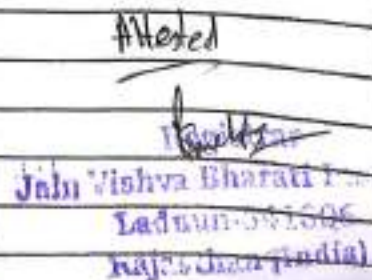 Attested
Registrar
Jain Vishva Bharati I
Ladnun-341306
Rajasthan (India)